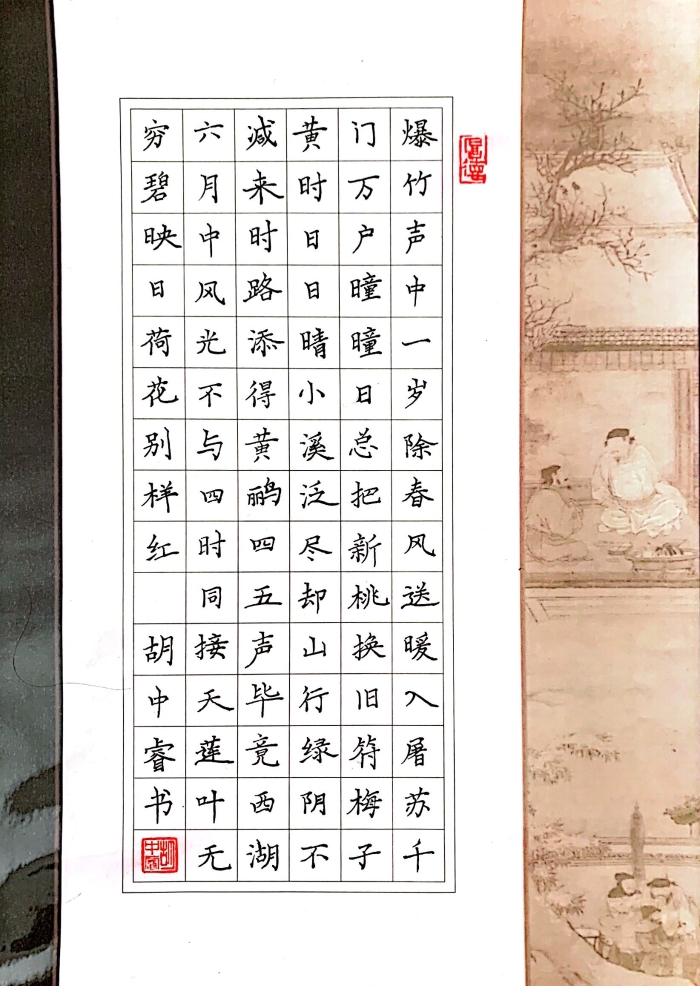 爆竹声中一岁除春风送暖入屠苏千
门万户曈曈日总把新桃换旧符梅子
黄时日日晴小溪泛尽却山行绿阴不
减来时路添得黄鹂四五声毕竟西湖
六月中风光不与四时同接天莲叶无
穷碧映日荷花别样红 胡中睿书